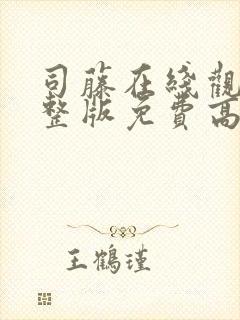 司藤在綫觀
整版免費高
王鶴瑾